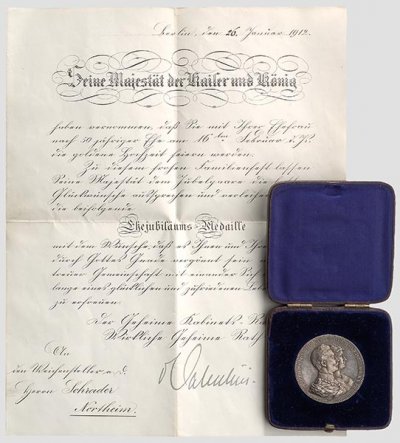 Berlin, den 26. Januar 1912.
Seine Majestät der Kaiser und König
haben vernommen, daß Sie mit Ihrer Ehefrau
nach 50 jähriger Ehe am 16ten Februar d. Js.
die goldene Hochzeit feiern werden.
Zu diesem frohen Familienfeste lassen
Seine Majestät dem Jubelpaare die
Glückwünsche aussprechen und
die beifolgende
Ehejubiläums-Medaille
mit dem Wunsche, daß es Ihnen und
durch Gottes Gnade vergönnt sein
treuer Gemeinschaft mit einander
lange eines glücklichen und zufriedenen
zu erfreuen.
Der Geheime Kabinets-
Wirkliche Geheime Rath
An
den Weichensteller a. D.
Herrn Schrader
Northeim.